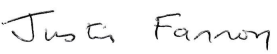 Justin Farron